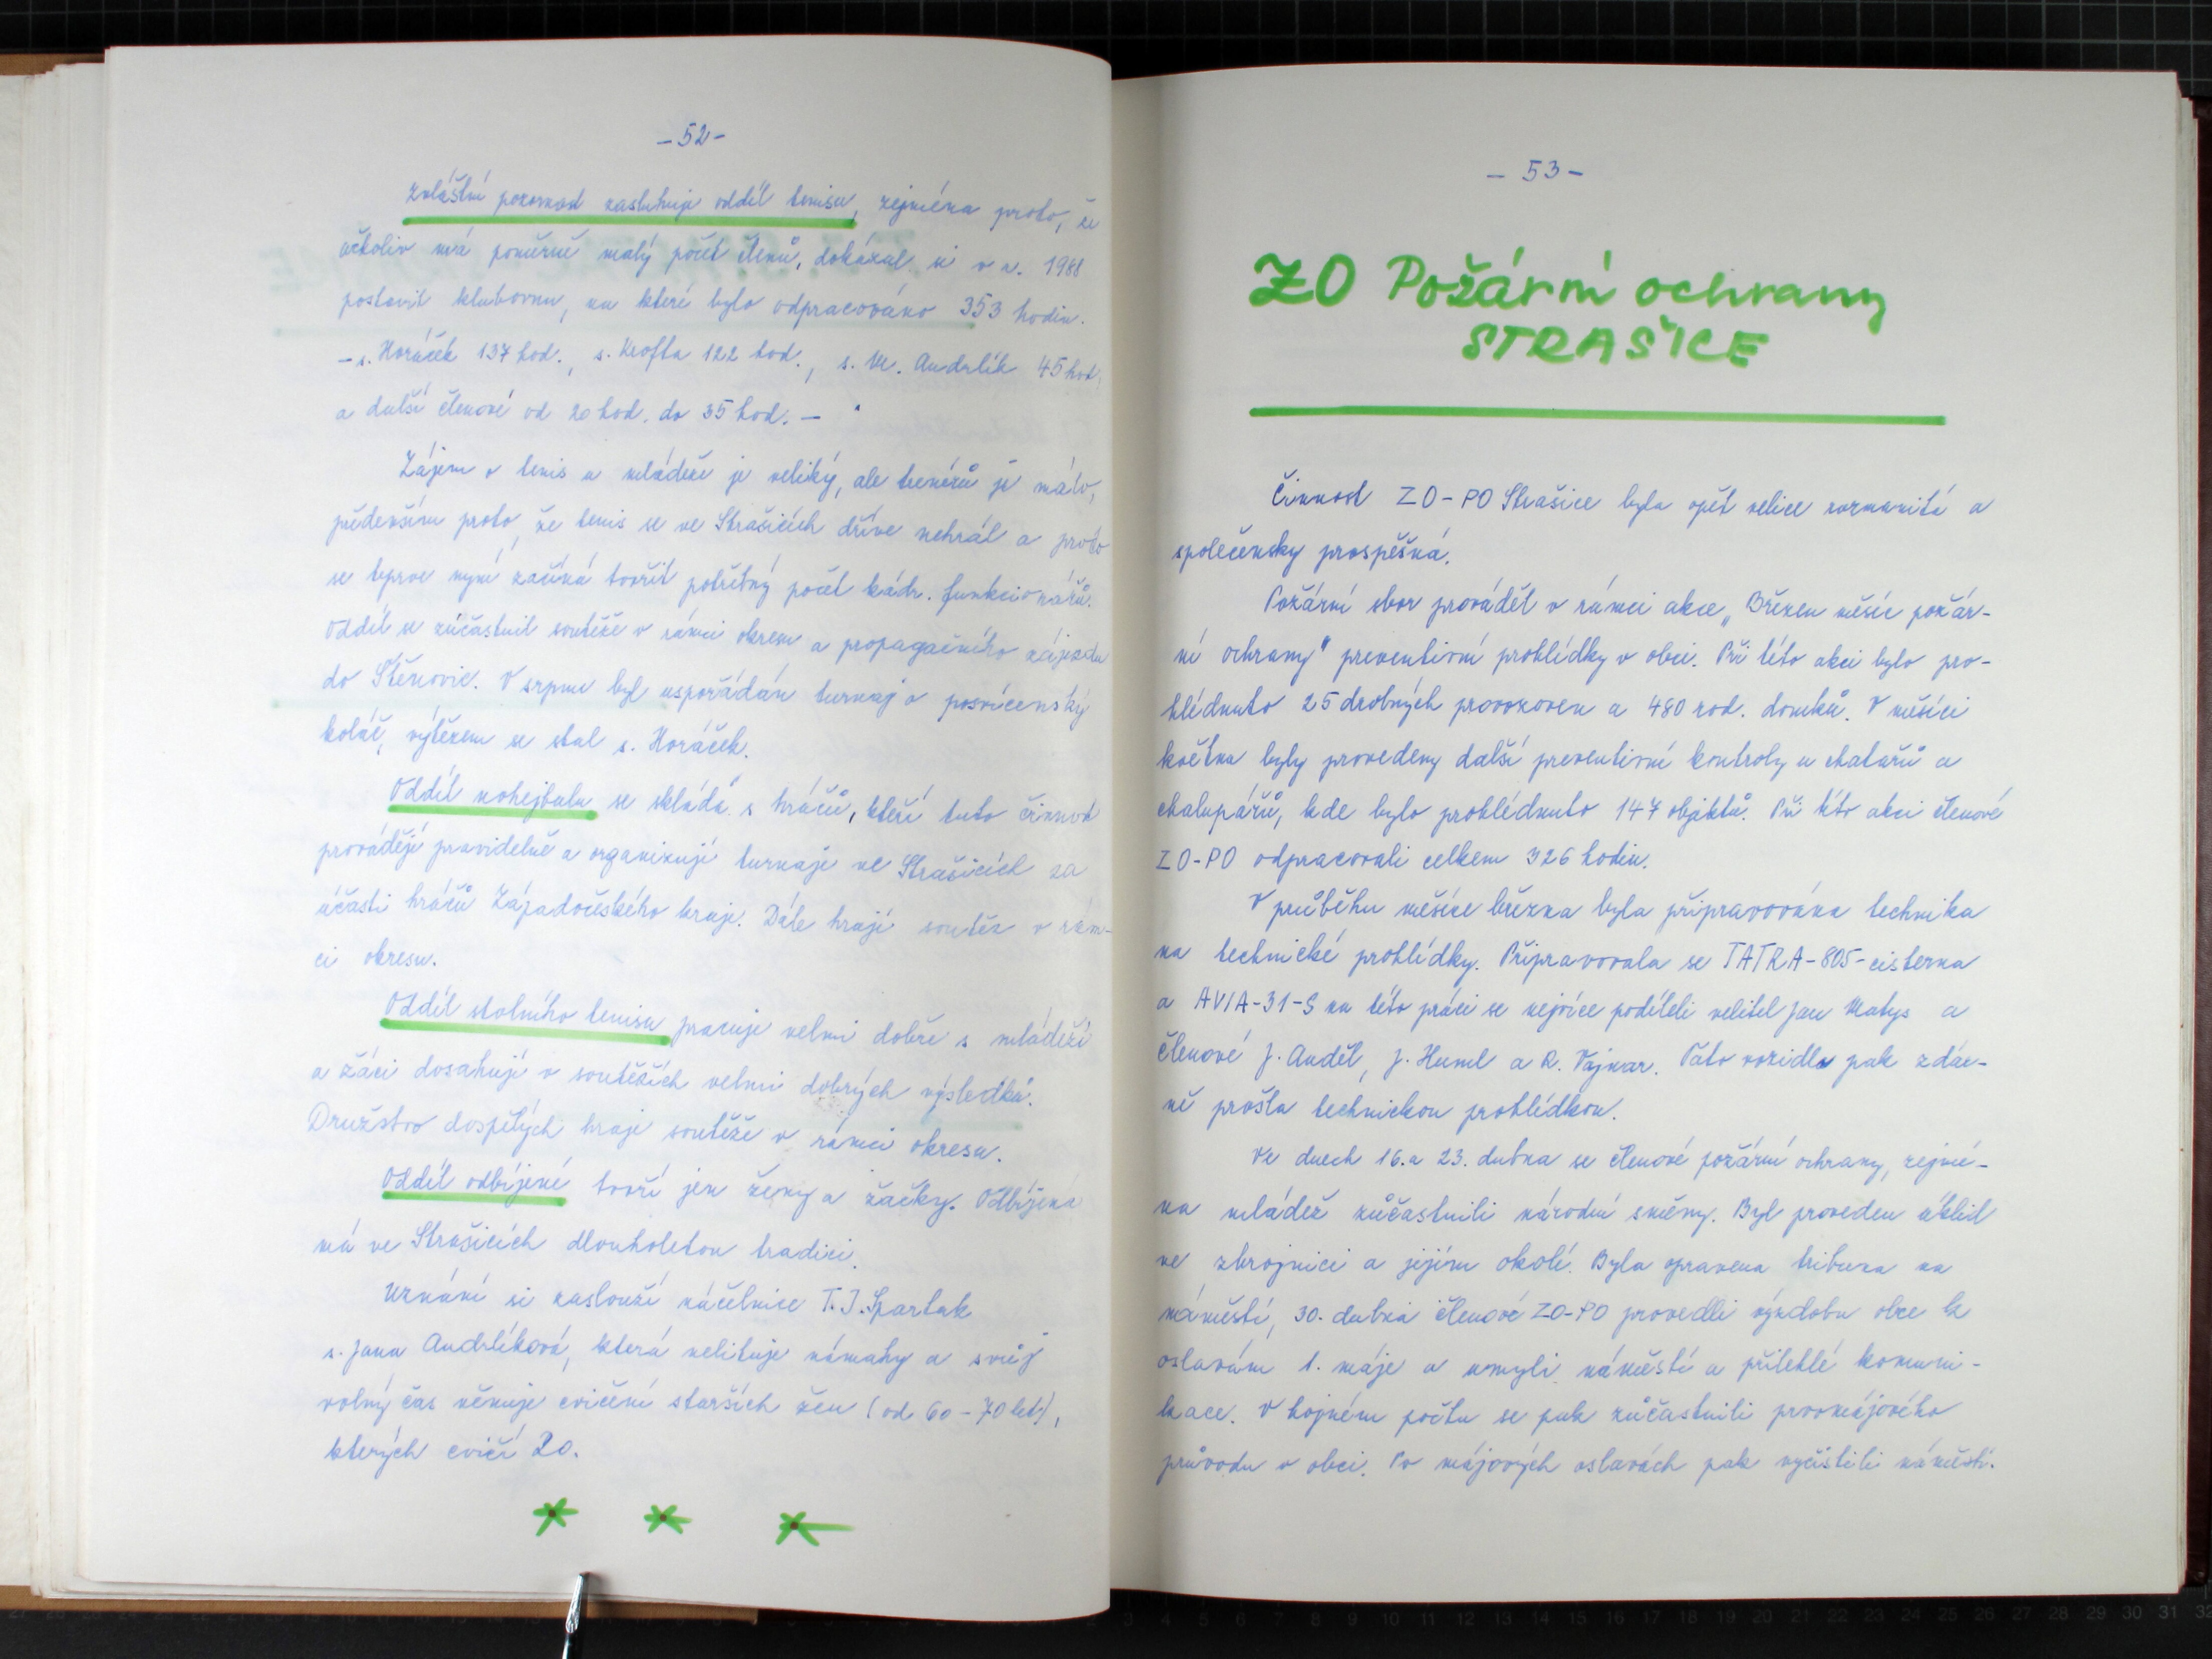 - 52 -
Zvláštní pozornost zasluhuje oddíl tenisu, zejména proto, že
ačkoliv má poměrně malý počet členů, dokázal si v r. 1988
postavit klubovnu, na které bylo odpracováno 353 hodin.
- s. Horáček 137 hod., s. Krofta 122 hod., s. Vl. Andrlík 45 hod.
a další členové od 20 hod. do 35 hod. -
Zájem o tenis u mládeže je veliký, ale trenérů je málo,
především proto, že tenis se ve Strašicích dříve nehrál a proto
se teprve nyní začíná tvořit potřebný počet kádr. funkcionářů.
Oddíl se zúčastnil soutěže v rámci okresu a propagačního zájezdu
do Štěnovic. V srpnu byl uspořádán turnaj o posvícenský
koláč, vítězem se stal s. Horáček.
Oddíl nohejbalu se skládá s hráčů, kteří tuto činnost
provádějí pravidelně a organizují turnaje ve Strašicích za
účasti hráčů Západočeského kraje. Dále hrají soutěž v rám-
ci okresu.
Oddíl stolního tenisu pracuje velmi dobře s mládeží
a žáci dosahují v soutěžích velmi dobrých výsledků.
Družstvo dospělých hraje soutěže v rámci okresu.
Oddíl odbíjené tvoří jen ženy a žačky. Odbíjená
má ve Strašicích dlouholetou tradici.
Uznání si zaslouží náčelnice T.J. Spartak
s. Jana Andrlíková, která nelituje námahy a svůj
volný čas věnuje cvičení starších žen (od 60 - 70 let),
kterých cvičí 20.
- 53 -
ZO Požární ochrany
STRAŠICE
Činnost ZO - PO Strašice byla opět velice rozmanitá a
společensky prospěšná.
Požární sbor prováděl v rámci akce „Březen měsíc požár-
ní ochrany" preventivní prohlídky v obci. Při této akci bylo pro-
hlédnuto 25 drobných provozoven a 480 rod. domků. V měsíci
květnu byly provedeny další preventivní kontroly u chatařů a
chalupářů, kde bylo prohlédnuto 147 objektů. Při této akci členové
ZO-PO odpracovali celkem 326 hodin.
V průběhu měsíce března byla připravována technika
na technické prohlídky. Připravovala se TATRA-805-cisterna
a AVIA-31-S na této práci se nejvíce podíleli velitel Jan Matys a
členové J. Anděl, J. Huml a R. Vajnar. Tato vozidla pak zdár-
ně prošla technickou prohlídkou.
Ve dnech 16. a 23. dubna se členové požární ochrany, zejmé-
na mládež zůčastnili národní směny. Byl proveden úklid
ve zbrojnici a jejím okolí. Byla opravena tribuna na
náměstí, 30. dubna členové ZO-PO provedli výzdobu obce k
oslavám 1. máje a umyli náměstí a přilehlé komuni-
kace. V hojném počtu se pak zůčastnili prvomájového
průvodu v obci. Po májových oslavách pak vyčistili náměstí.